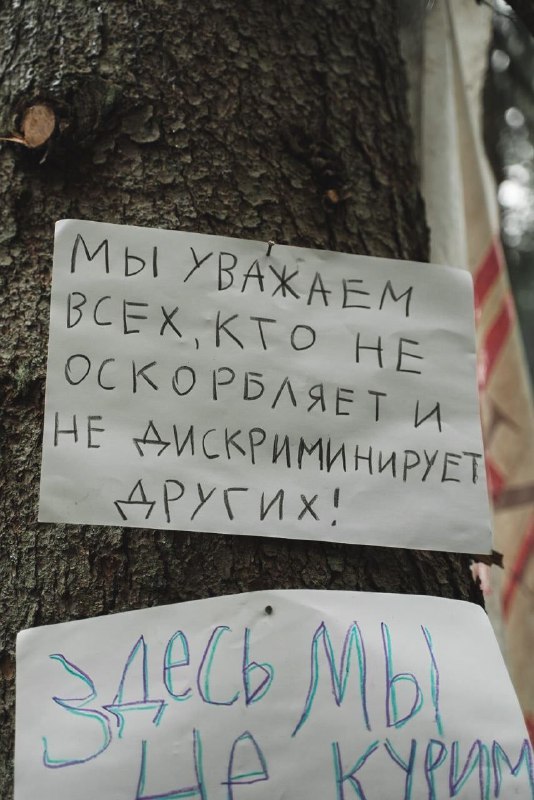 МЫ УВАЖАЕМ
ВСЕХ, КТО НЕ
ОСКОРБЛЯЕТ И
НЕ ДИСКРИМИНИРУЕТ
ДРУГИХ!
ЗДеСЬ МЫ
Не КУРИМ